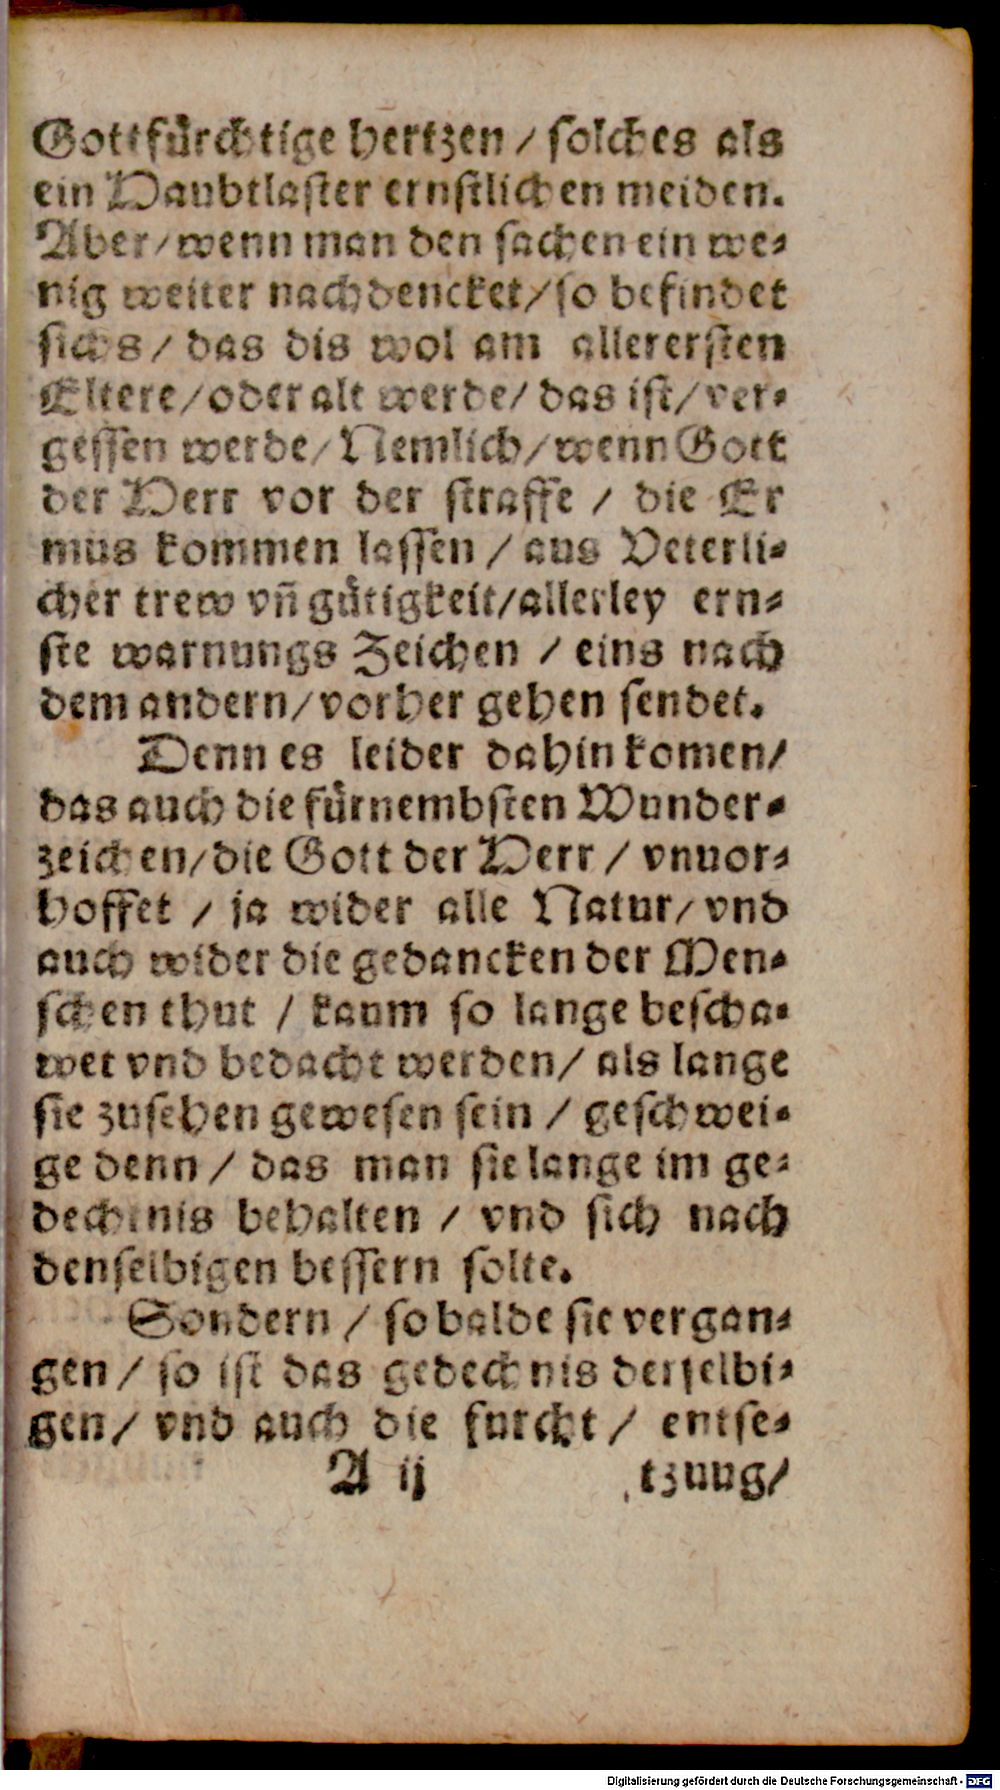 Gottfürchtige hertzen / solches als
ein Haubtlaster ernstlichen meiden.
Aber / wenn man den sachen ein we-
nig weiter nachdencket / so befindet
sichs / das dis wol am allerersten
Eltere / oder alt werde / das ist / ver-
gessen werde / Nemlich / wenn Gott
der Herr vor der straffe / die Er
mus kommen lassen / aus Veterli-
cher trew vñ gütigkeit / allerley ern-
ste warnungs Zeichen / eins nach
dem andern / vorher gehen sendet.
Denn es leider dahin komen /
das auch die fürnembsten Wunder-
zeichen / die Gott der Herr / vnuor-
hoffet / ja wider alle Natur / vnd
auch wider die gedancken der Men-
schen thut / kaum so lange bescha-
wet vnd bedacht werden / als lange
sie zusehen gewesen sein / geschwei-
ge denn / das man sie lange im ge-
dechtnis behalten / vnd sich nach
denselbigen bessern solte.
Sondern / so balde sie vergan-
gen / so ist das gedechnis derselbi-
gen / vnd auch die furcht / entse-
A ij tzung /
Digitalisierung gefördert durch die Deutsche Forschungsgemeinschaft - DFG